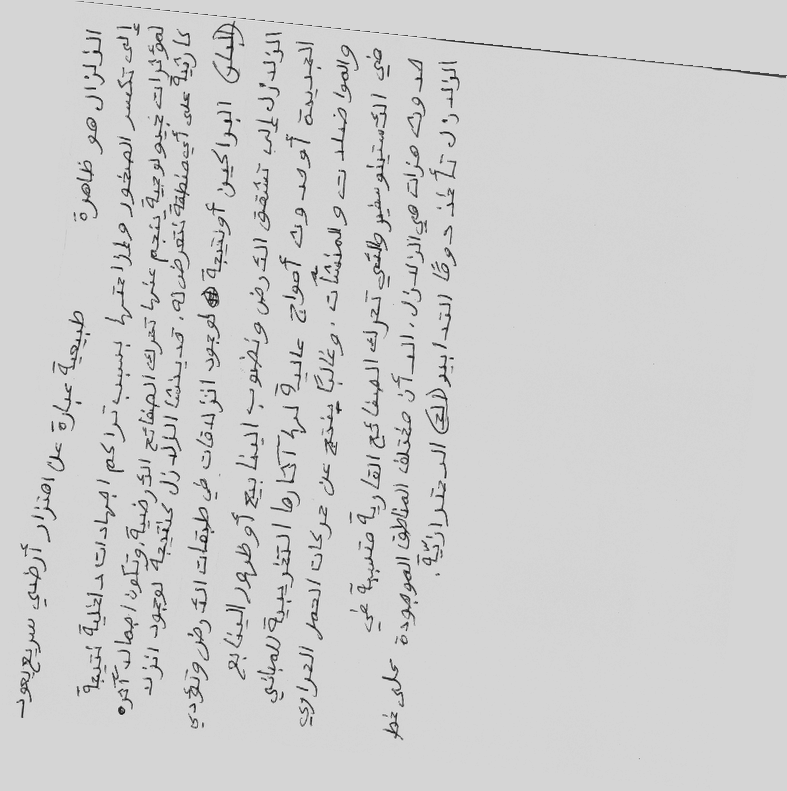 الزلزال هو ظاهرة
طبيعية عبارة عن اهتزاز أرضي سريع يعود
إلى تكسر الصخور وإزاحتها بسبب تراكم اجهادات داخلية نتيجة
لمؤثرات جيولوجية ينجم عنها تحرك الصفائح الأرضية، وتكون اجمالا آثره
كارثية على أي منطقة تتعرض له، قد ينشأ الزلازل كنتيجة لوجود انزلا
البراكين أو نتيجة لوجود انزلاقات في طبقات الأرض وتؤدي
الزلازل إلى تشقق الأرض ونضوب الينابيع أو ظهور الينابع
الجديدة أو حدوث أمواج عالية لها آثارها التخريبية للمباني
والمواصلات والمنشآت، وغالبًا ينتج عن حركات الحمل الحراري
في الأستينوسفير والتي تحرك الصفائح القارية متسببة في
حدوث هزات هي الزلازل، الا أن مختلف المناطق الموجودة على خط
الزلازل تأخذ دومًا التدابير الاحترازيّة.